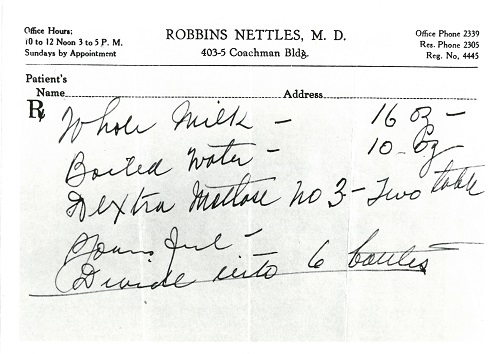 Office Hours:
10 to 12 Noon 3 to 5 P. M.
Sundays by Appointment
ROBBINS NETTLES, M. D.
403-5 Coachman Bldg.
Office Phone 2339
Res. Phone 2305
Reg. No. 4445
Patient's
Name Address
Rx
Whole Milk - 16 oz -
Boiled Water - 10 - oz -
Dextra Maltose No 3 - Two table
Spoons ful -
Divide into 6 bottles